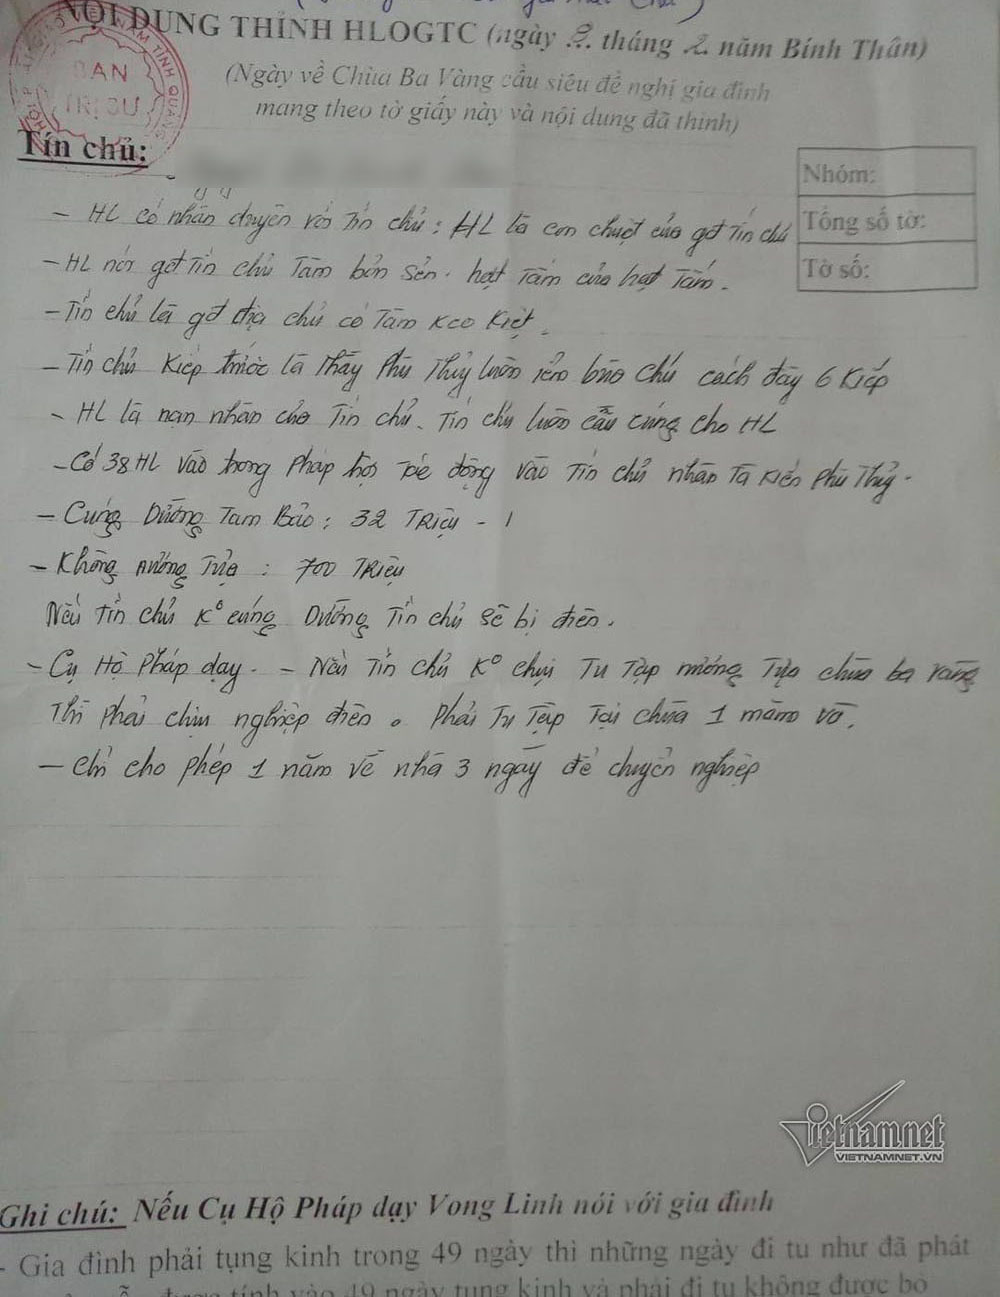 NỘI DUNG THỈNH HLOGTC (ngày 2. tháng 2. năm Bính Thân)
(Ngày về Chùa Ba Vàng cầu siêu đề nghị gia đình
mang theo tờ giấy này và nội dung đã thỉnh)
BAN
TRỊ SỰ
Tín chủ:
Nhóm:
Tổng số tờ:
Tờ số:
- HL có nhân duyên với Tín chủ: HL là con chuột của gđ Tín chủ
- HL nói gđ Tín chủ Tâm bỏn sẻn. hạt Tấm cũng hạt Tấm.
- Tín chủ là gđ địa chủ có Tâm keo kiệt.
- Tín chủ kiếp trước là Thầy Phù Thủy luôn yểm bùa chú cách đây 6 kiếp
- HL là nạn nhân của Tín chủ. Tín chủ luôn cầu cúng cho HL
- Có 38 HL vào trong Pháp hội tác động vào Tín chủ nhân Tà kiến Phù Thủy.
- Cúng Dường Tam Bảo: 32 Triệu - 1
- Không nương Tựa: 700 Triệu
Nếu Tín chủ K° cúng Dường Tín chủ sẽ bị điên.
- Cụ Hộ Pháp dạy. - Nếu Tín chủ K° chịu Tu Tập nương Tựa chùa ba vàng
Thì Phải chịu nghiệp điên. Phải Tu Tập Tại chùa 1 năm
- Chỉ cho phép 1 năm về nhà 3 ngày để chuyển nghiệp
Vietnamnet
VIETNAMNET.VN
Ghi chú: Nếu Cụ Hộ Pháp dạy Vong Linh nói với gia đình
- Gia đình phải tụng kinh trong 49 ngày thì những ngày đi tu như đã phát
được tính vào 49 ngày tụng kinh và phải đi tu không được bỏ